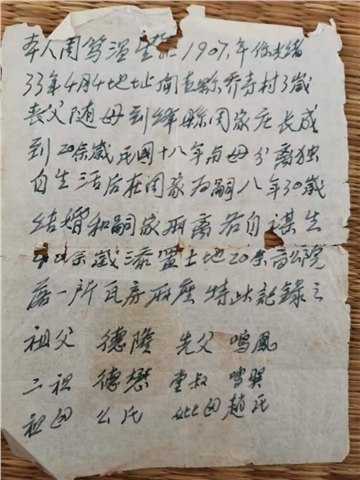 本人周笃温生於1907.年係光绪
33年4月4地址闻喜縣乔寺村3歲
丧父随母到绛縣周家庄长成
到20余歲民國十八年与母分离独
自生活后在周家为嗣八年30歲
结婚和嗣家两离若自谋生
40余歲添置土地20余亩公院
落一所瓦房两座特此記錄之
祖父 德隆 先父 鳴鳳
二祖 德懋 堂叔 鳴
祖母 公氏 妣母趙氏